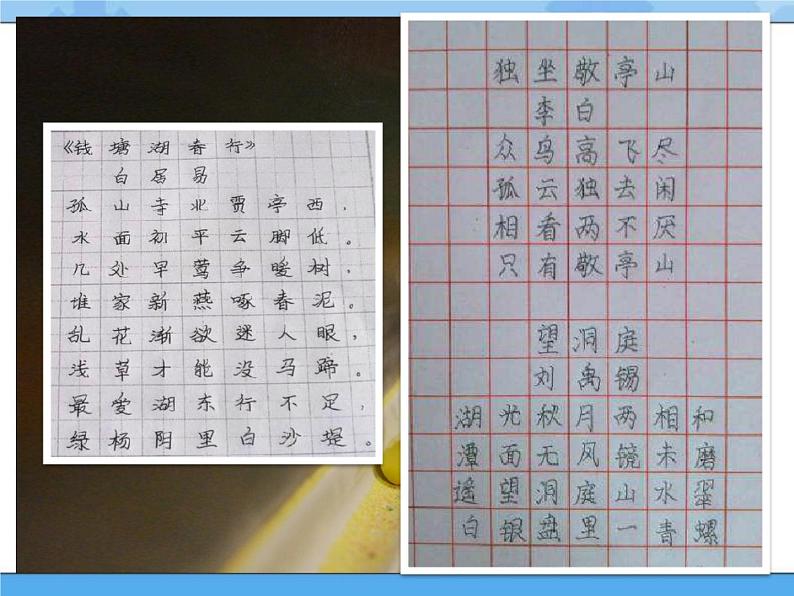 《钱塘湖春行》
白居易
孤山寺北贾亭西，
水面初平云脚低。
几处早莺争暖树，
堆家新燕啄春泥。
乱花渐欲迷人眼，
浅草才能没马蹄。
最爱湖东行不足，
绿杨阴里白沙堤。
独坐敬亭山
李白
众鸟高飞尽
孤云独去闲
相看两不厌
只有敬亭山
望洞庭
刘禹锡
湖光秋月两相和
潭面无风镜未磨
遥望洞庭山水翠
白银盘里一青螺